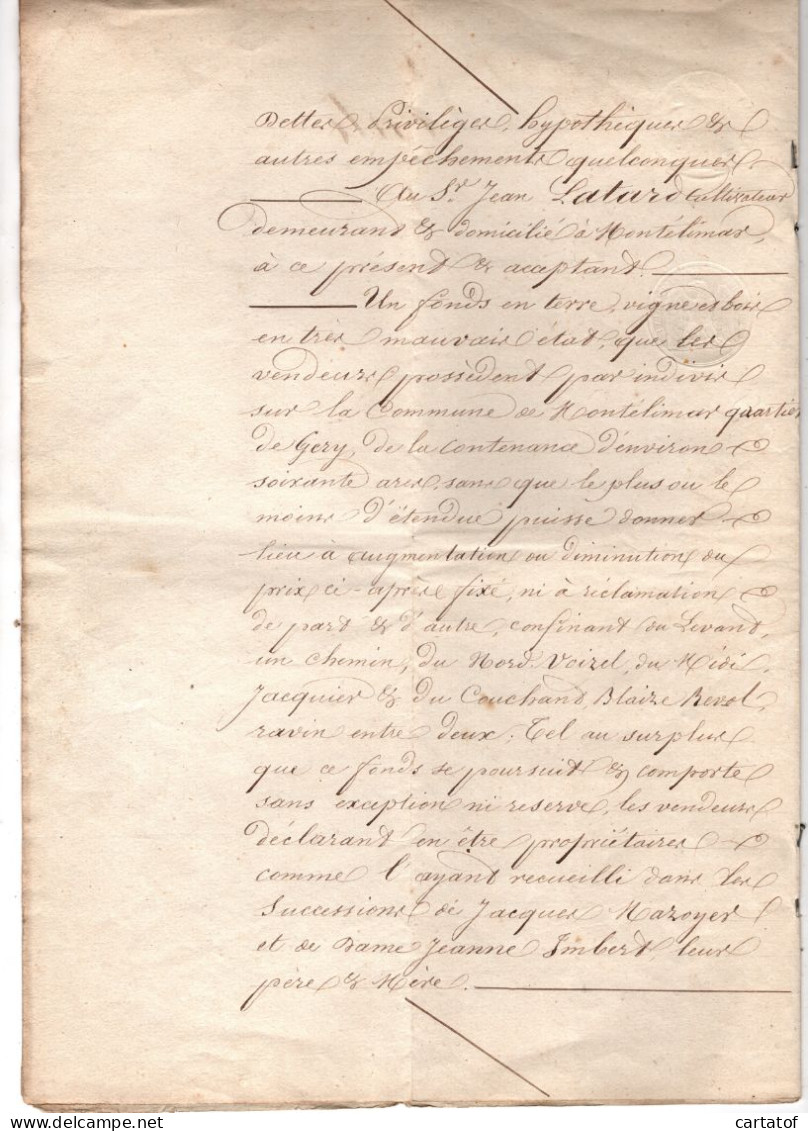 Dettes, Priviléges, hypothèques &
autres empêchements quelconques
Au Sr. Jean Latard Cultivateur
demeurant & domicilié à Montélimar,
à ce présent & acceptant.
Un fonds en terre, vigne et bois
en très mauvais état, que les
vendeurs possèdent par indivis
sur la Commune de Montélimar quartier
de Gery, de la contenance d'environ
soixante ares, sans que le plus ou le
moins d'étendue puisse donner
lieu à augmentation ou diminution du
prix ci-après fixé, ni à réclamation
de part & d'autre, confinant du Levant,
un chemin, du Nord Voizel, du Midi
Jacquier & du Couchant, Blaize Revol,
ravin entre deux; Tel au surplus
que ce fonds se poursuit & comporte
sans exception ni reserve, les vendeurs
déclarant en être propriétaires
comme l'ayant recueilli dans les
Successions de Jacques Mazoyer
et de Dame Jeanne Imbert, leurs
père & Mère.
cartatof